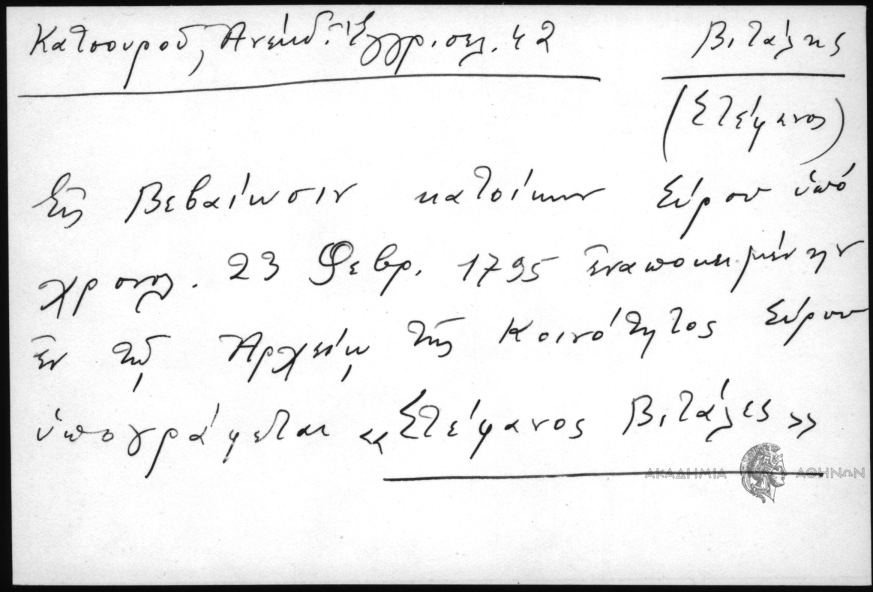 Κατσουροῦ, Ἀνέκδ. Ἔγγρ. σελ. 42
Βιτάλης
(Στέφανος)
Εἰς Βεβαίωσιν κατοίκων Σύρου ὑπό
χρονολ. 23 Φεβρ. 1795 ἐναποκειμένην
ἐν τῷ Ἀρχείῳ τῆς Κοινότητος Σύρου
ὑπογράφεται «Στέφανος Βιτάλες»
ΑΚΑΔΗΜΙΑ ΑΘΗΝΩΝ